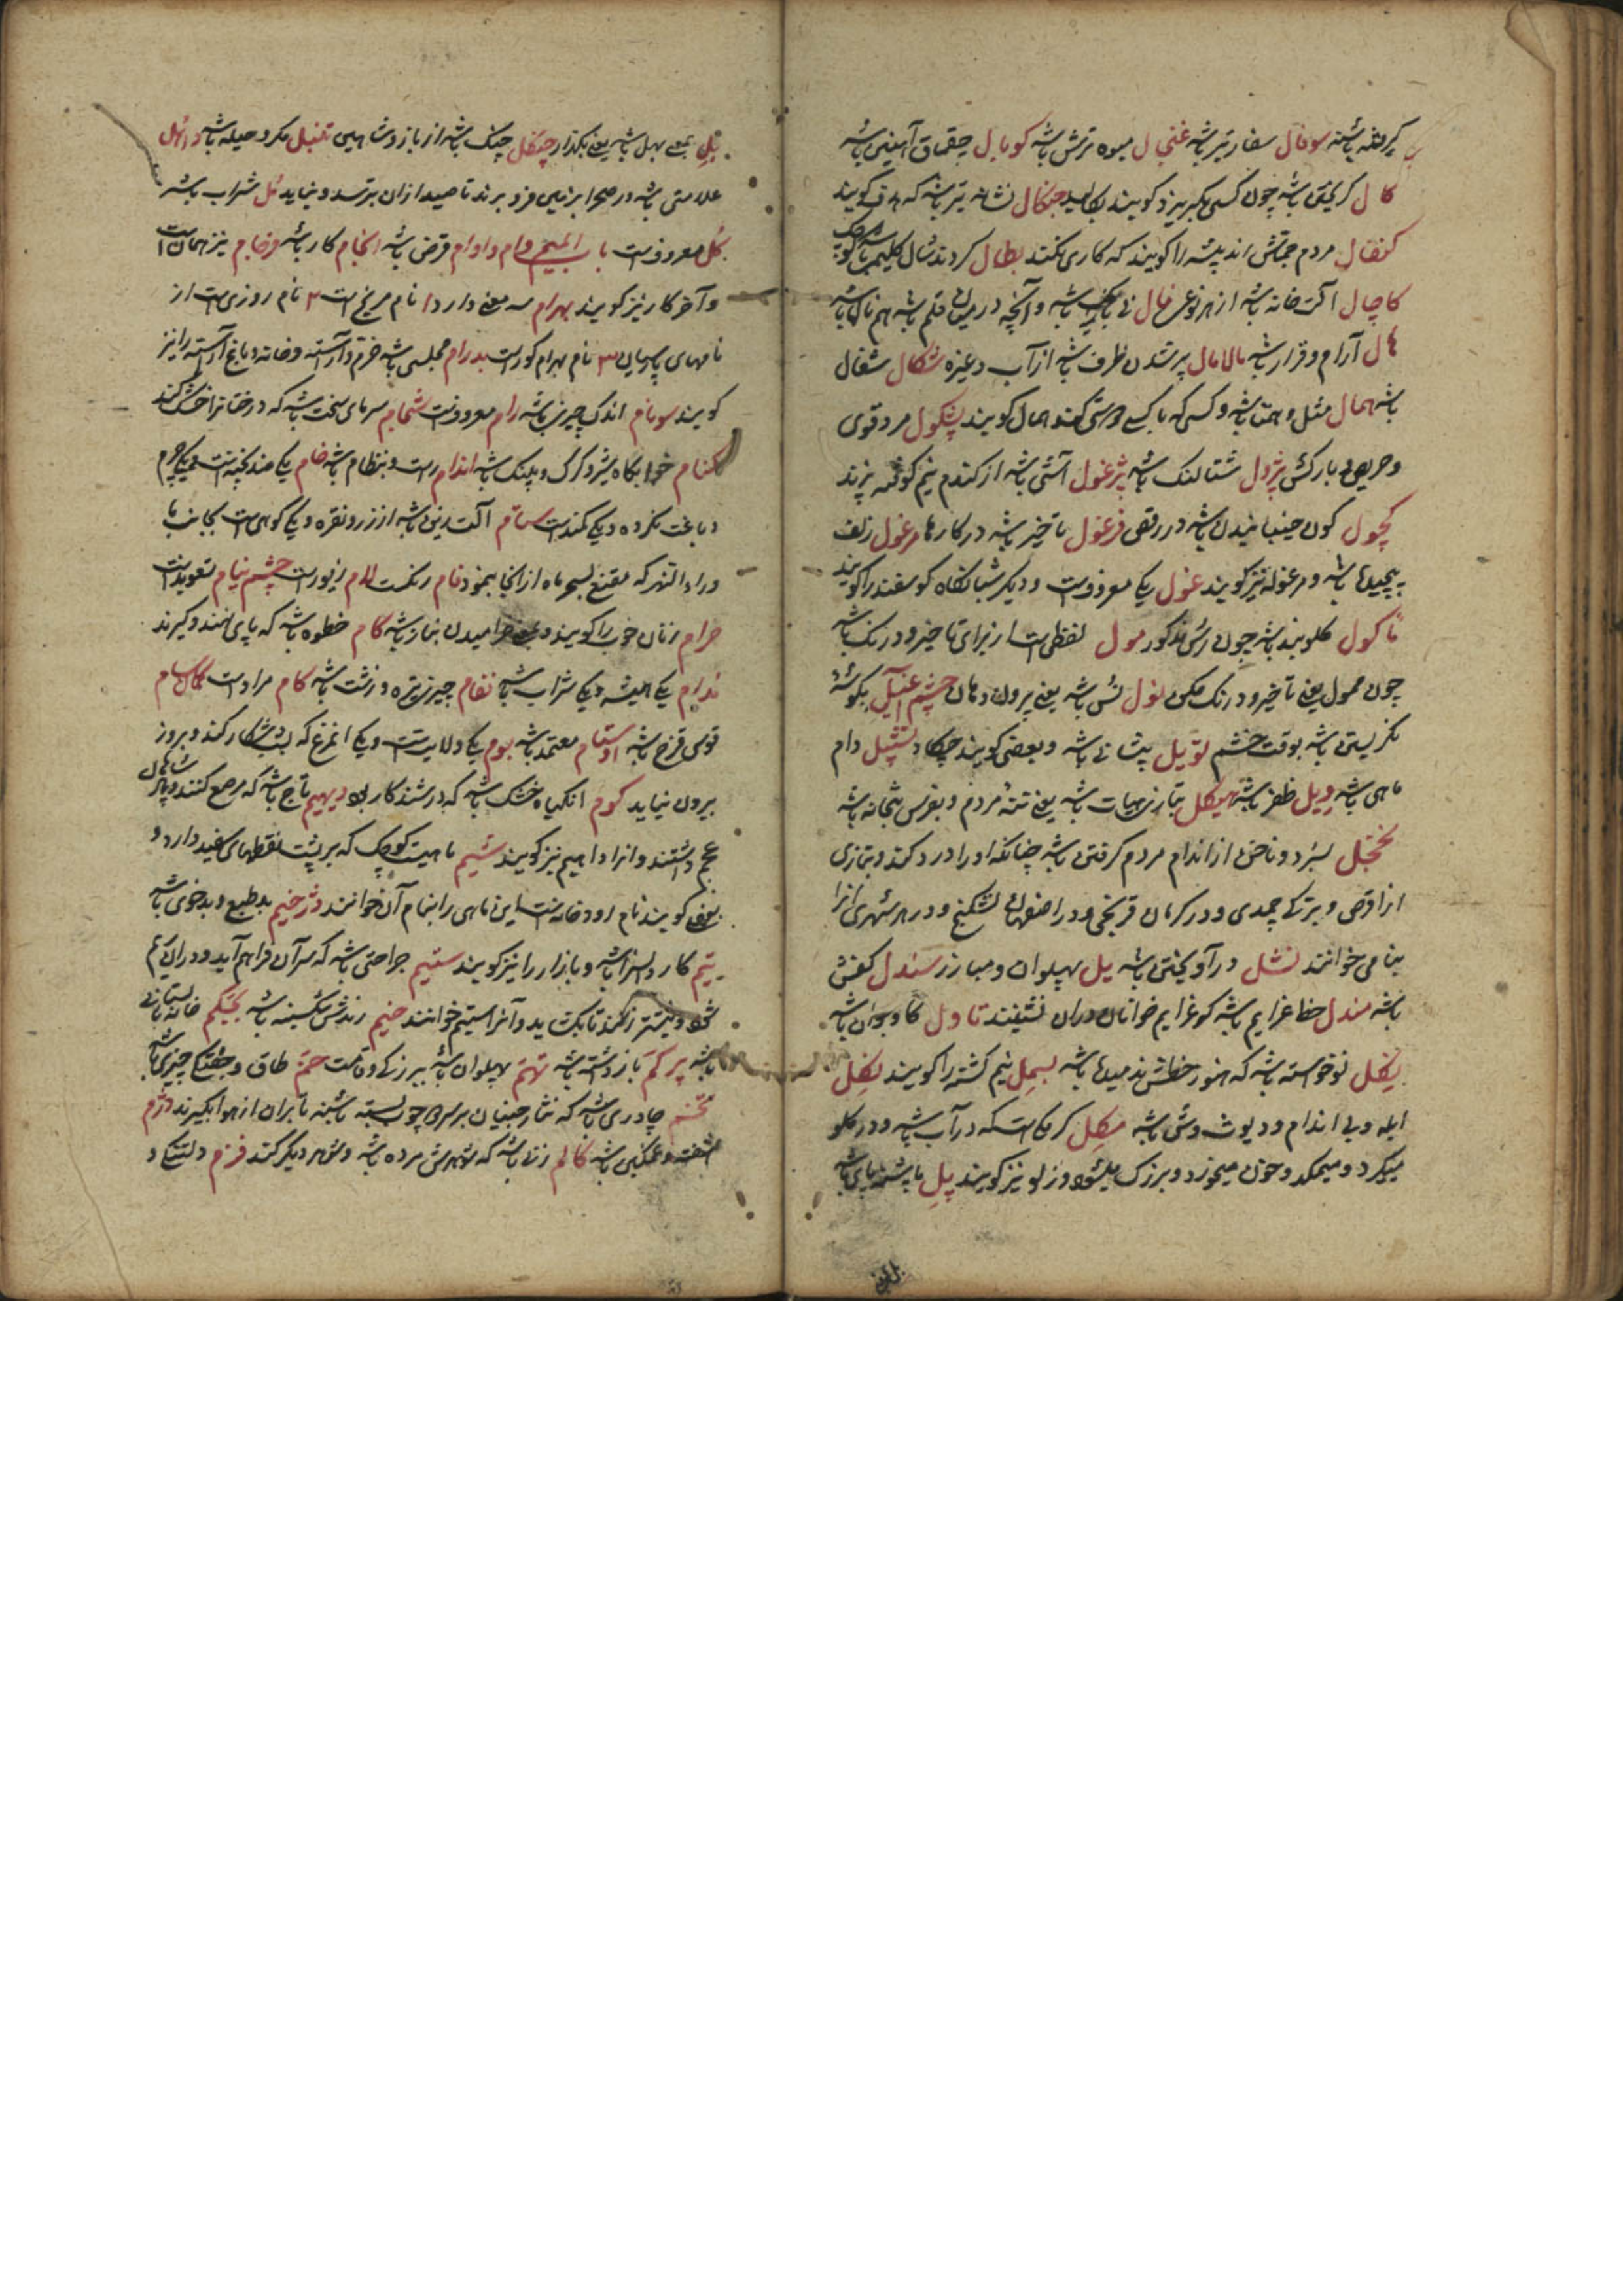 باشند سوفال سفار تیر باشد غنجال میوه ترش باشد کوبال چقماق آهنین باشد
کال گریختن باشد چون کسی بگریزد گویند بکالید جنکال نشانه تیر باشد که هدف گویند
مردم اندیشه را گویند که کاری نکنند بطال کردند شال کلیم
کاچال آلت خانه باشد از هر نوع نال نی باشد و آنچه در میان قلم باشد هم نال باشد
هال آرام و قرار باشد مالامال پر شدن ظرف باشد از آب و غیره شکال شغال
باشد همال مثل و همتا باشد و کسی که با کسی کند همال گویند پشکول مرد قوی
و حریص بارکش پژول شتالنک باشد پرغول آشی باشد از کندم نیم کوفته پزند
کچول کون جنبانیدن باشد در رقص فرغول تاخیر باشد در کارها مرغول زلف
پیچیده باشد و مرغوله نیز گویند غول یکی معروفست و دیگر شبانگاه گوسفند را گویند
ناکول باشد چون مول لفظی است از برای تاخیر و درنک باشد
چون ممول یعنی تاخیر و درنک مکن نول باشد یعنی بیرون دهان چشم اغیل بگوشه
نگریستن باشد بوقت خشم تویل پیشانی باشد و بعضی گویند چکاد نشپیل دام
ماهی باشد ویل ظفر باشد هیکل بتازی باشد یعنی تنه مردم و بفرس بتخانه باشد
نخجل ناخن از اندام مردم گرفتن باشد چنانکه او را درد کند و بتازی
انرا قرص و بترکی چمدی و در کرمان و در اصفهان نشکنج و در هر شهری انرا
بنامی خوانند نشل در آویختن باشد یل پهلوان و مبارز سندل کفش
باشد مندل خط عزایم باشد که عزایم خوانان در ان نشینند تاول کاو جوان باشد
یکل نوخواسته باشد که هنوز خطش ندمیده باشد بسمل نیم کشته را گویند نکل
ابله و بی اندام و دیوث باشد مکل کرمی است که در آب باشد و در گلو
میگیرد و میمکد و خون میخورد و بزرک میشود و زلو نیز گویند پل پاشنه پای باشد
بل بمعنی بهل باشد یعنی بگذار چنکل چنک باشد از باز و شاهین تنبل مکر و حیله باشد داهل
علامتی باشد در صحرا بر زمین فرو برند تا صید از ان بترسد و نیاید مل شراب باشد
گل معروفست باب المیم وام و اوام قرض باشد انجام کار باشد فرجام نیز همان است
و آخر کار نیز گویند بهرام سه معنی دارد ۱ نام مریخ است ۲ نام روزی است از
نامهای پارسیان ۳ نام بهرام کور است بدرام مجلسی باشد خرم و آراسته و خانه و باغ آراسته را نیز
گویند سونام اندک چیزی باشد رام معروفست شجام سرمای سخت باشد که درختان را خشک کند
کنام خوابگاه شیر و کرک و پلنک باشد اندام راست و بنظام باشد خام یکی ضد پخته است و یکی چرم
دباغت نکرده و یکی کمند است ستام آلت زین باشد از زر و نقره و یکی کوهی است بجانب ما
وراء النهر که مقنع بسحر ماه از انجا بنمود فام رنگست لام زیور است چشم پنام تعویذ است
خرام زنان خوب را گویند و بمعنی خرامیدن بناز باشد گام خطوه باشد که پای نهند و گیرند
مدام یکی همیشه و یکی شراب باشد نفام چیزی تیره و زشت باشد کام مراد است
قوس قزح باشد اوستام معتمد باشد بوم یکی ولایتست و یکی ان مرغ که بشب شکار کند و بروز
بیرون نیاید کوم ان گیاه خشک باشد که در شدکار بود دیهیم تاج باشد که مرصع کنند و پادشاهان
عجم داشتند و انرا داهیم نیز گویند شیم ماهیست کوچک که بر پشت نقطهای سفید دارد و
بعضی گویند نام رودخانه است این ماهی را بنام آن خوانند دژخیم بد طبع و بد خوی باشد
تیم کاروانسرا باشد و بازار را نیز گویند ستیم جراحتی باشد که سر آن فراهم آید و در ان ریم
شود و نیشتر زنند تا بکشاید و آنرا استیم خوانند خیم باشد بجکم خانه تابستانی
باشد پرکم بازداشته باشد تهم پهلوان باشد ببزرگی و قامت خم طاق و
نخم چادری باشد که نثار چینان بر سر دو چوب بسته باشند تا بران از هوا بگیرند دژم
آشفته و غمگین باشد کالم زنی باشد که شوهرش مرده باشد و شوهر دیگر کند فرزم دلتنگی و